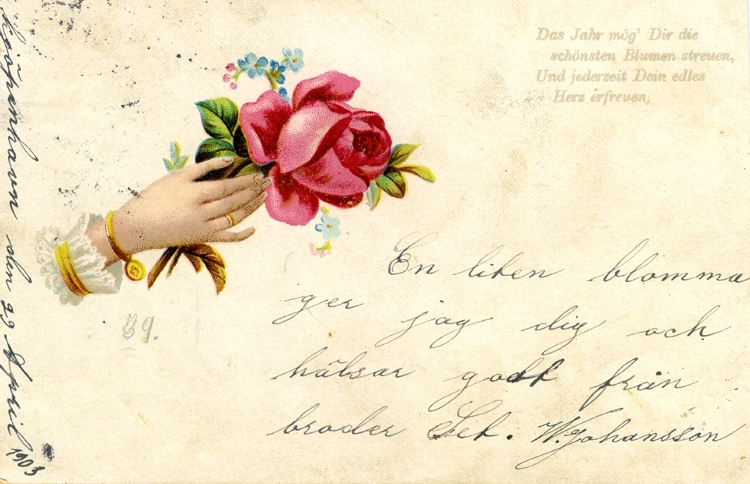 Das Jahr mög' Dir die
schönsten Blumen streuen,
Und jederzeit Dein edles
Herz erfreuen,
Kjöpenhavn den 29 April 1903
59.
En liten blomma
ger jag dig och
hälsar godt från
broder W. Johansson